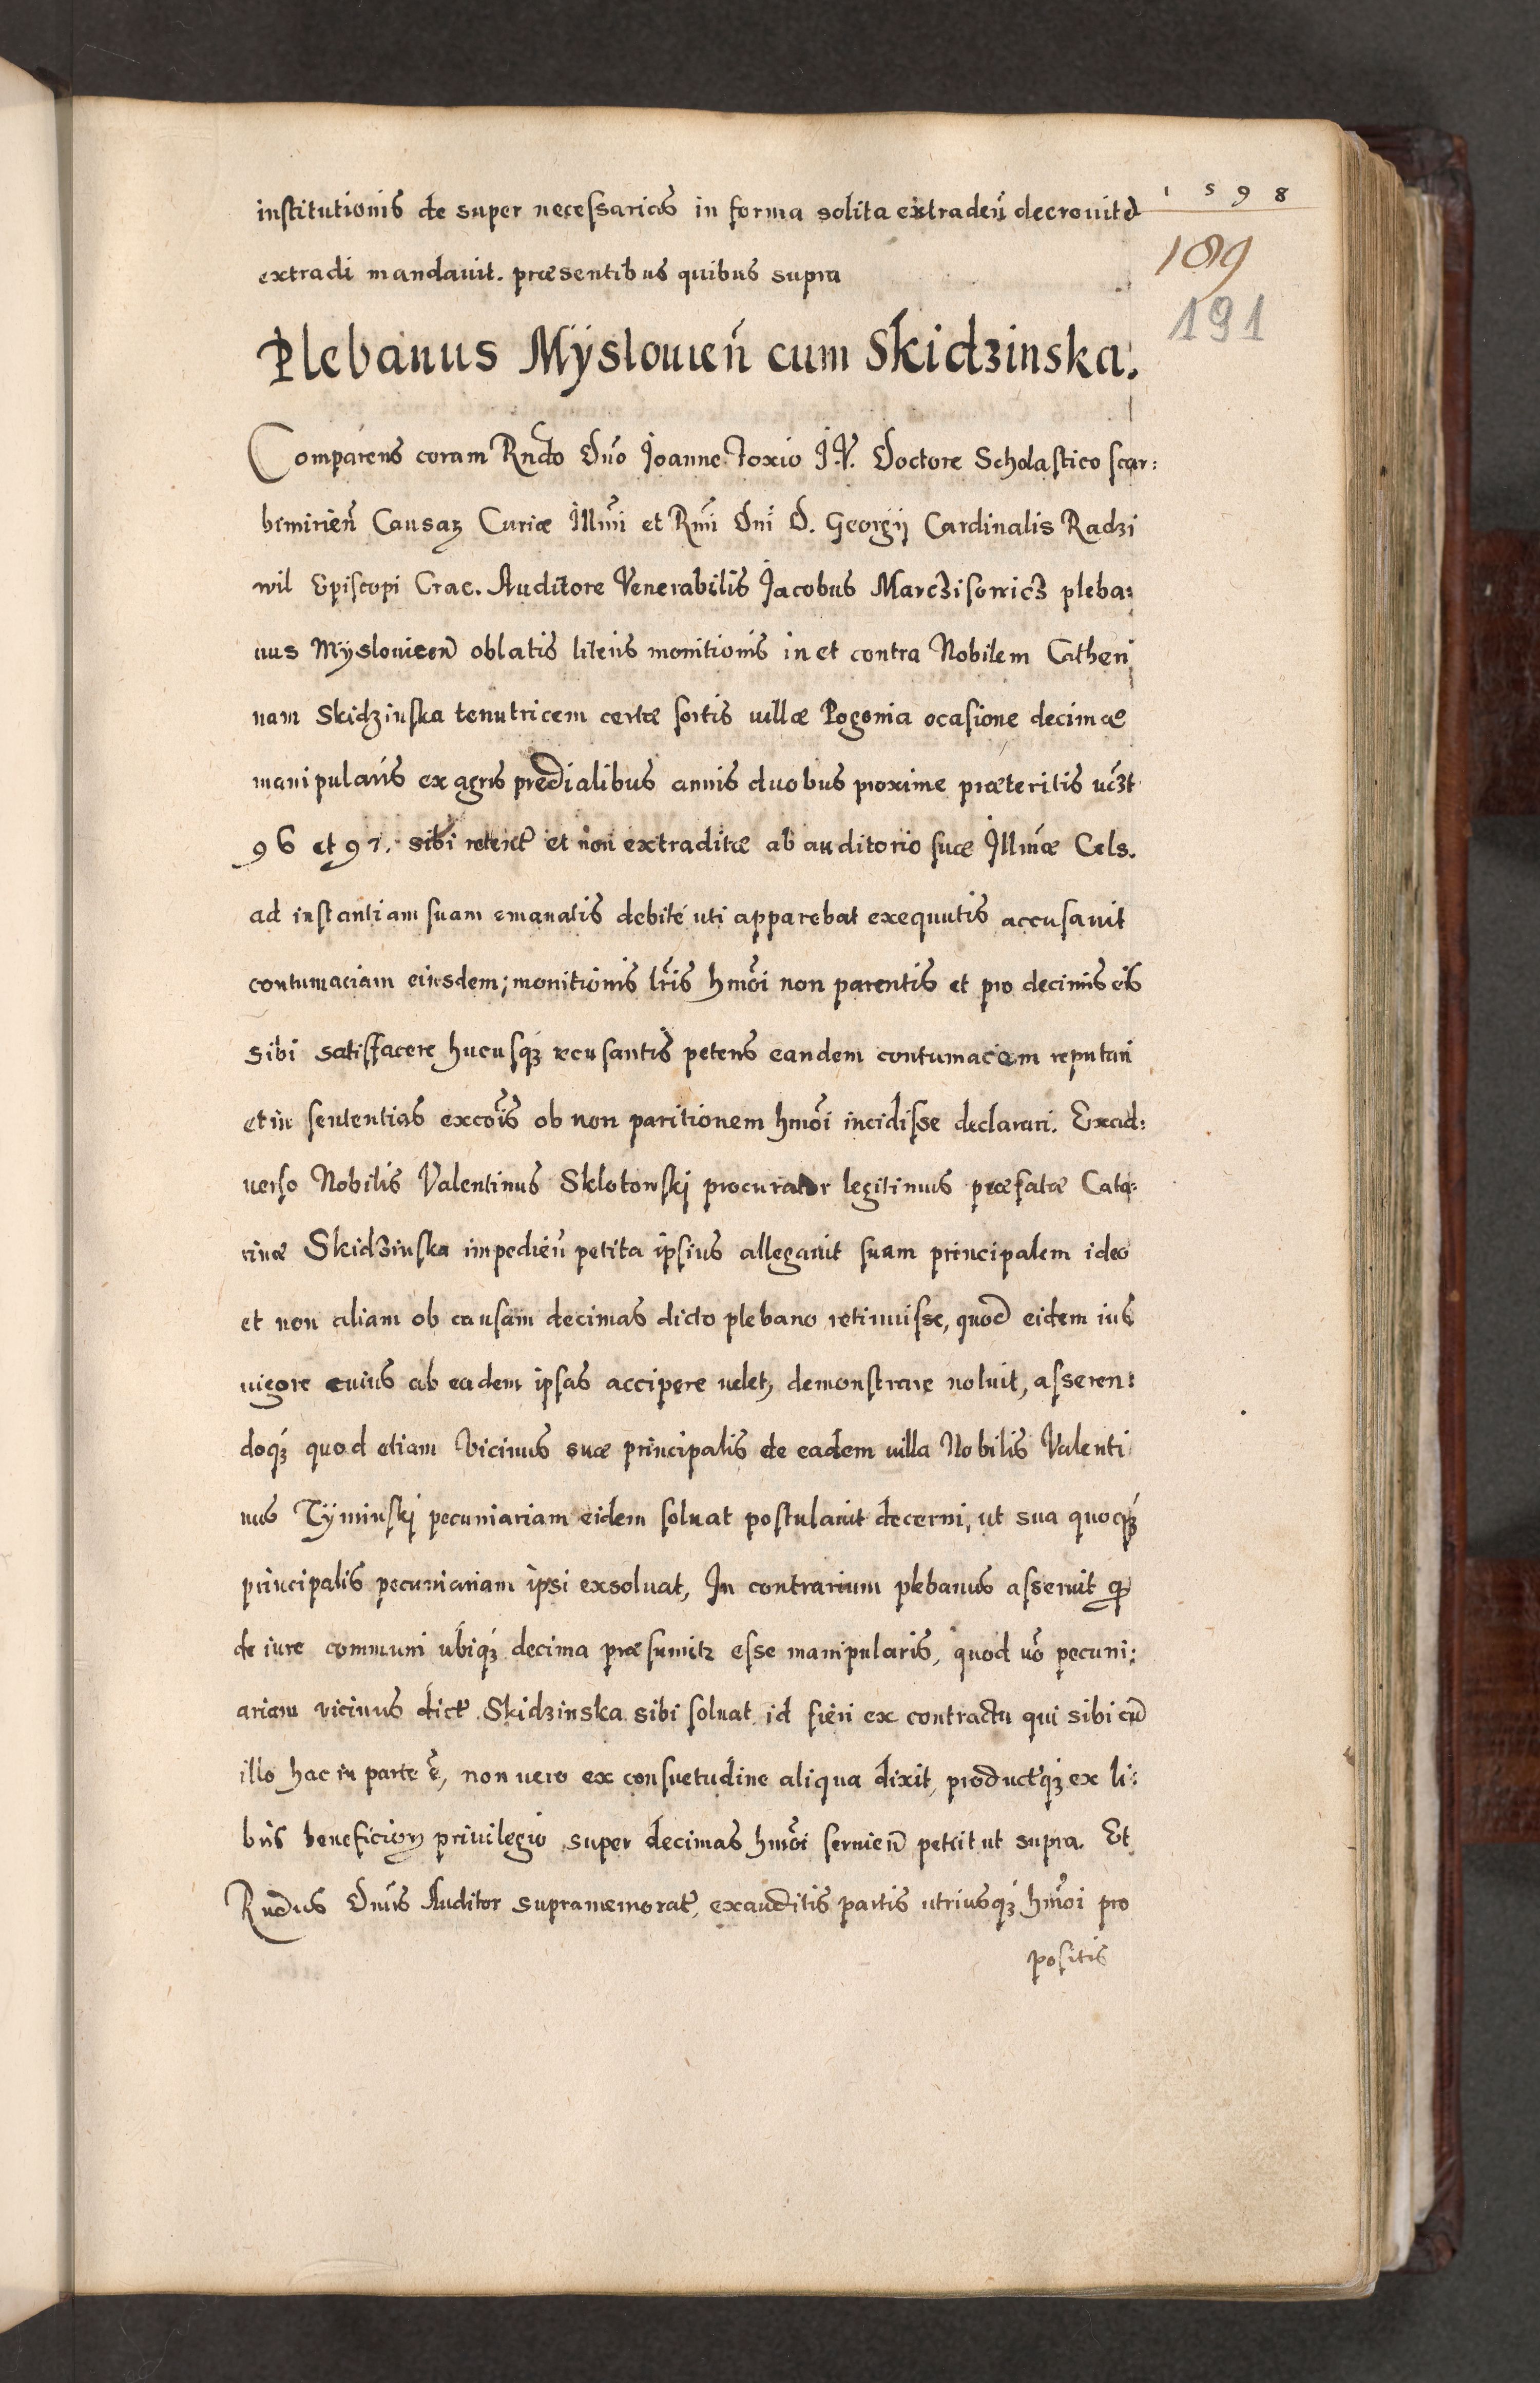 1598
189
191
institutionis de super necessarias in forma solita extradeñ decrevit et
extradi mandavit. præsentibus quibus supra
Plebanus Mÿslouieñ cum Skidzinska.
Comparens coram Rndo Dño Joanne Foxio J.V. Doctore Scholastico scar:
bimirieñ Causaꝝ Curiæ Illmi et Rmi Dni D. Georgij Cardinalis Radzi
wil Episcopi Crac. Auditore Venerabilis Jacobus Marczisowicz pleba:
nus Mÿslouiceñ oblatis literis monitionis in et contra Nobilem Catheri
nam Skidzinska tenutricem certæ sortis villæ Pogonia ocasione decimæ
manipularis ex agris predialibus annis duobus proxime præteritis vczt
96 et 97. sibi retent et non extraditæ ab auditorio suæ Illmæ Cels.
ad instantiam suam emanatis debité uti apparebat exequutis accusavit
contumaciam eiusdem; monitionis lris hmoi non parentis et pro decimis eis
sibi satisfacere hucusqꝫ recusantis petens eandem contumacem reputari
et in sententias excois ob non paritionem hmoi incidisse declarari. Exad:
verso Nobilis Valentinus Sklotowskj procurator legitimus præfatæ Cata:
rinæ Skidzinska impedieñ petita ipsius allegavit suam principalem ideo
et non aliam ob causam decimas dicto plebano retinuisse, quod eidem ius
vigore cuius ab eadem ipsas accipere velet, demonstrare noluit, asseren:
doqꝫ quod etiam vicinus suæ principalis de eadem villa Nobilis Valenti
nus Tÿminskj pecuniariam eidem solvat postulavit decerni, ut sua quoqꝫ
principalis pecuniariam ipsi exsolvat, In contrarium plebanus asseruit ꝙ
de iure communi ubiqꝫ decima præsumitr esse manipularis, quod vo pecuni:
ariam vicinus dict Skidzinska sibi solvat id fieri ex contractu qui sibi cum
illo hac in parte ē, non vero ex consuetudine aliqua dixit, productqꝫ ex li:
bris beneficioꝝ privilegio super decimas hmoi servieñ petiit ut supra. Et
Rndus Dnus Auditor supramemorat, exauditis partis utriusqꝫ hmoi pro
positis